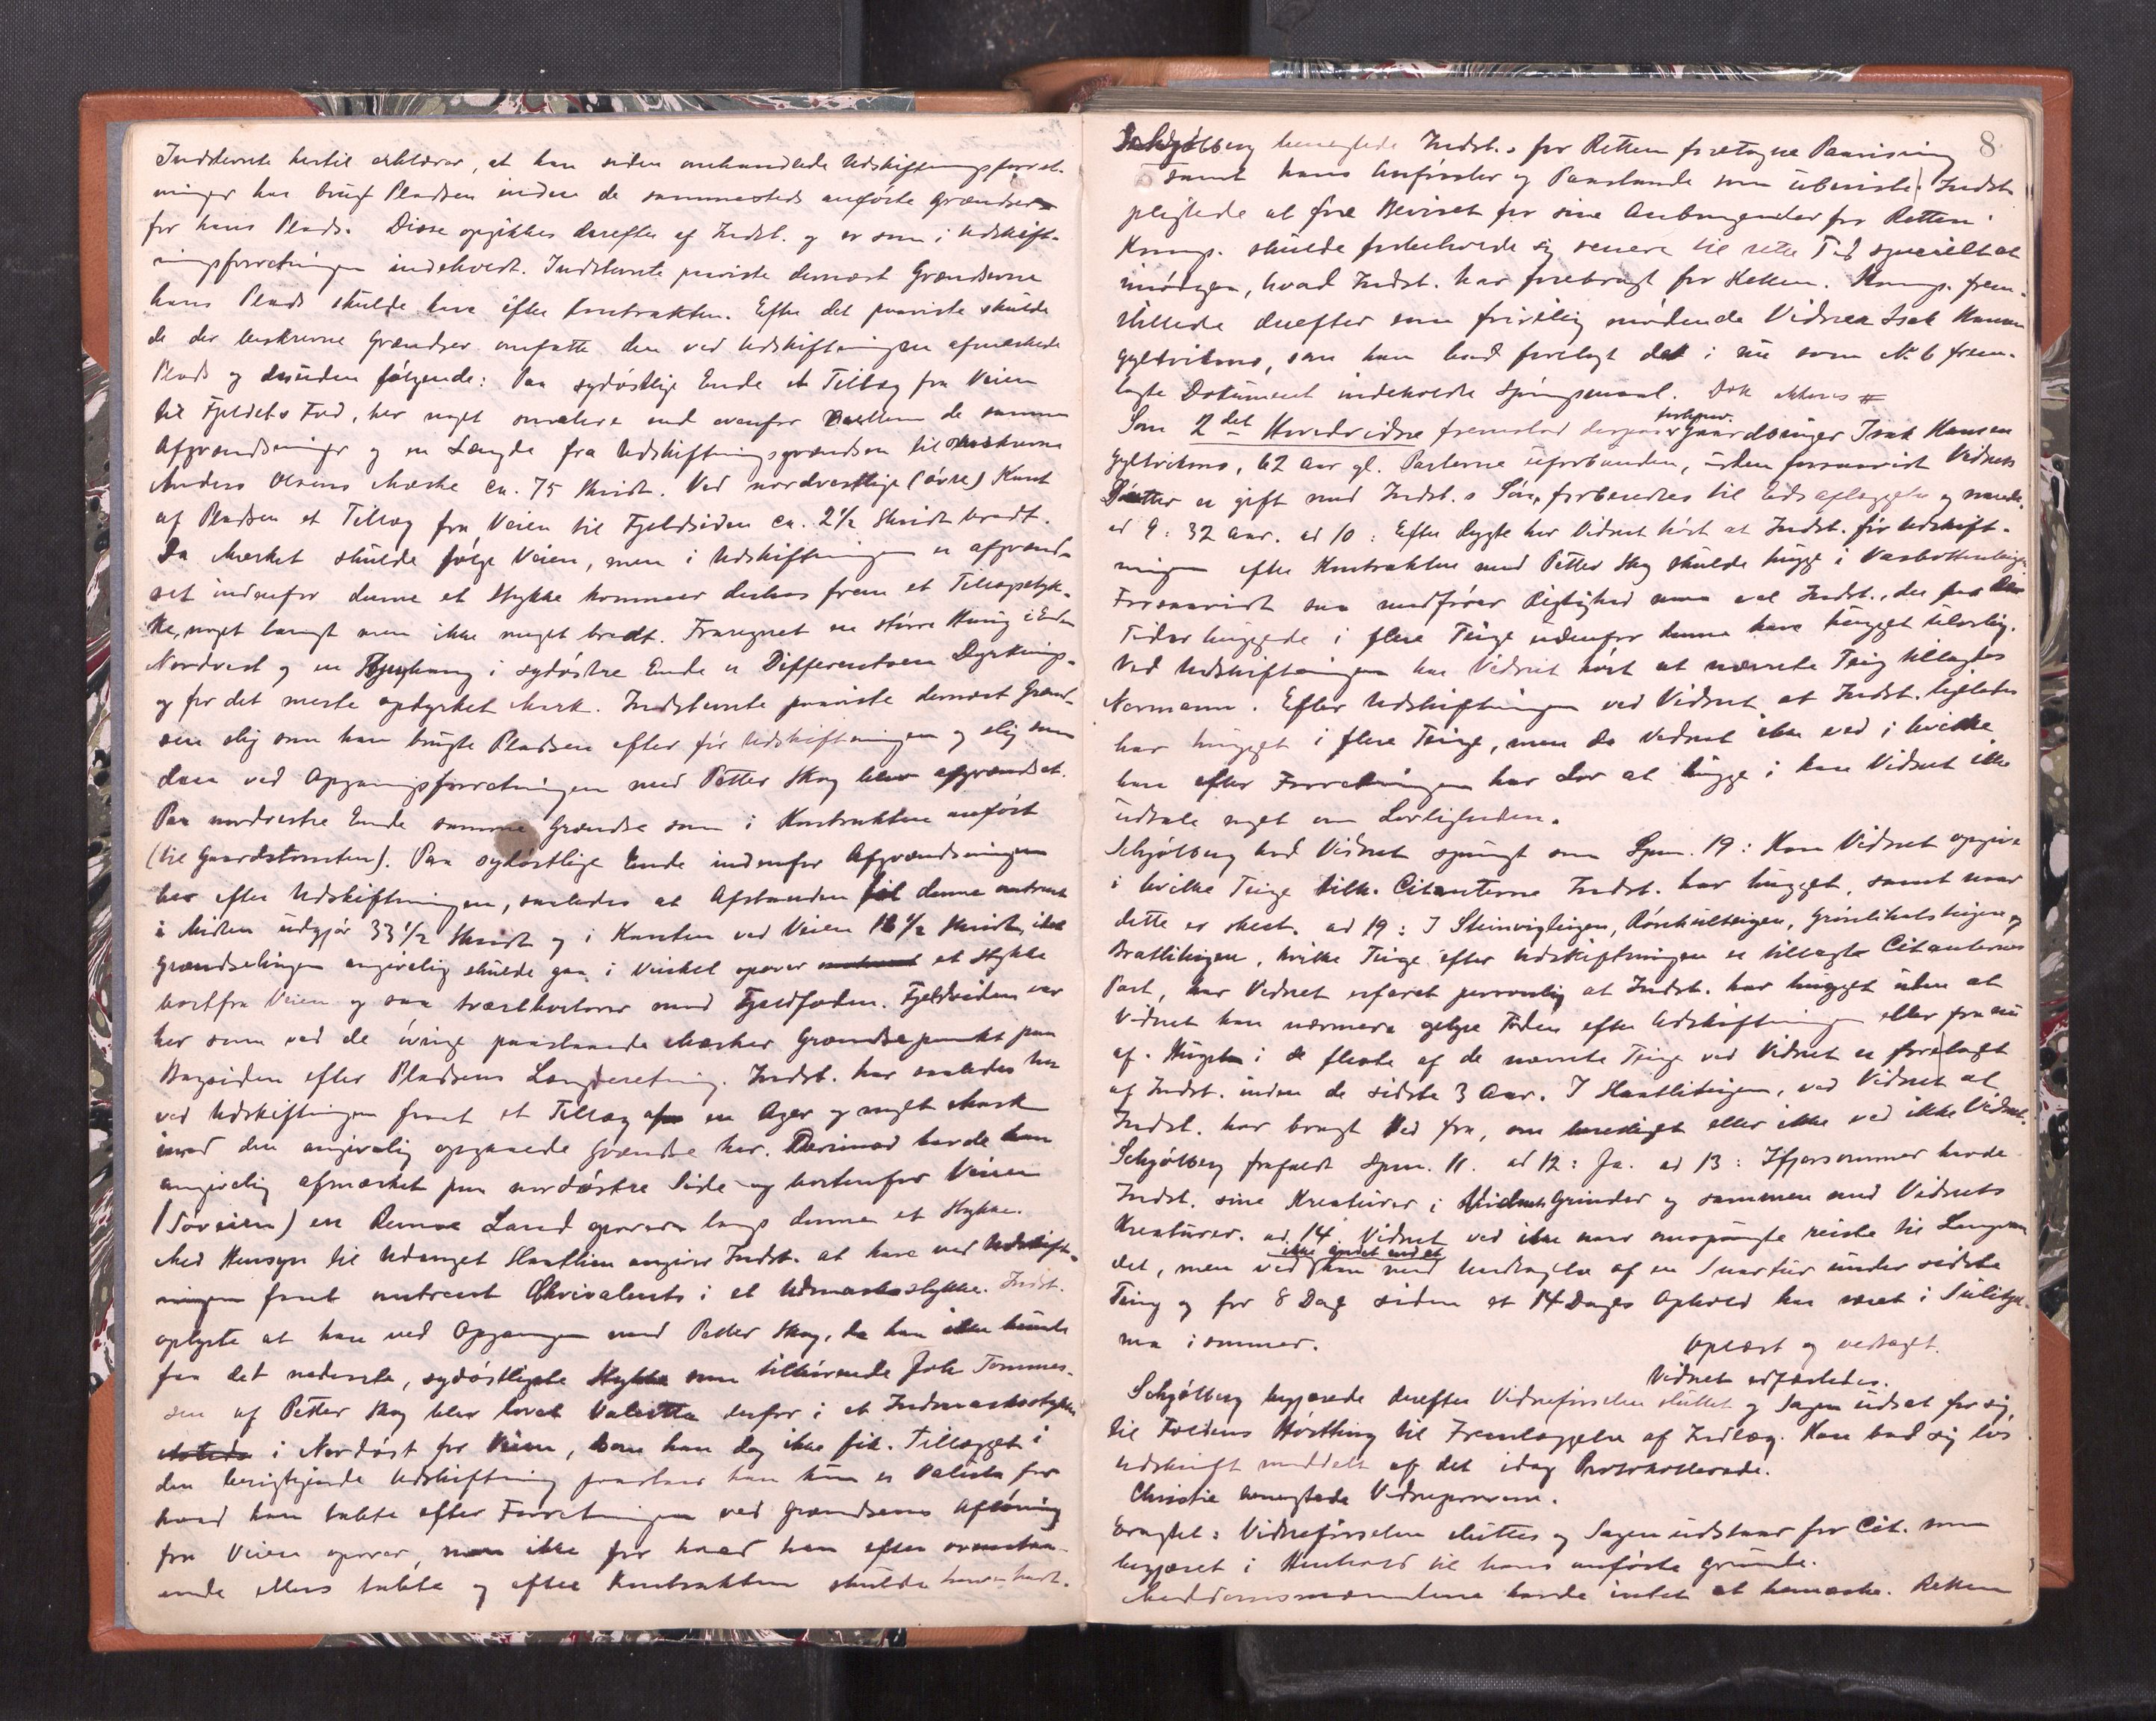 Indstevnte hertil erklærer, at han siden omhandlede Udskiftningsforret-
ninger har brugt Pladsen inden de sammesteds anførte Grændser
for hans Plads. Disse opgikkes derefter af Indst. og er som i Udskift-
ningsforretningen indehvert. Indstevnte paaviste dernæst Grændserne
hans Plads skulde have efter Kontrakten. Efter det paaviste skulde
de der beskrevne Grændser omfatte den ved Udskiftningen afmærkede
Plads og desuden følgende: Paa sydøstlige Ende et Tillæg fra Veien
til Fjeldets Fod, her noget smalere end ovenfor mellem de samme
Afgrændsninger og en Længde fra Udskiftningsgrændsen til
Anders Olsens Mærke ca. 75 Skridt. Ved nordvestlige (øvre) Kant
af Pladsen et Tillæg fra Veien til Fjeldsiden ca. 2½ Skridt bredt.
Da Mærket skulde følge Veien, men i Udskiftningen er afgrænd-
set indenfor denne et Stykke kommer derhos frem et Tillægsstyk-
ke, noget langt men ikke meget bredt. Fraregnet en større Haug i Enden
Nordvest og en i sydøstre Ende er Differentsen Dyrknings-
og for det meste opdyrket Mark. Indstevnte paaviste dernæst Grænd-
sen slig som han brugte Pladsen efter før Udskiftningen og slig som
den ved Opgangsforretningen med Petter Skog blev afgrændset.
Paa nordvestre Ende samme Grændse som i Kontrakten anført
(til Gaardstomten). Paa sydøstlige Ende indenfor Afgrændsningen
her efter Udskiftningen, saaledes at Afstanden til denne omtrent
i Midten udgjør 33½ Skridt og i Kanten ved Veien 12½ Skridt, idet
Grændselinjen angivelig skulde gaa i Vinkel opover et Stykke
bortfra Veien og saa tværtbortover mod Fjeldfoden. Fjeldsiden var
her som ved de øvrige paastaaede Mærker Grændsepunkt paa
Bagsiden efter Pladsens Længderetning. Indst. har saaledes her
ved Udskiftningen faaet et Tillæg af en Ager og noget Mark
imod den angivelig opgaaede Grændse her. Derimod havde han
angivelig afmærket paa nordøstre Side og bortenfor Veien
(Søveien) en Remse Land opover langs denne et Stykke.
Med Hensyn til Udenget Haatlien angiver Indst. at have ved Udskift-
ningen faaet omtrent Ækvivalents i et Udmarksstykke. Indst.
oplyste at han ved Opgangen med Petter Skog, da han ikke kunde
faa det nederste, sydøstligste Stykke som tilhørende Joh. Tommes-
sen af Petter Skog blev lovet Valuta derfor i et Indmarksstykke
i Nordøst for Veien, som han dog ikke fik. Tillægget i
den berigtigende Udskiftning paastaar han kun er Valuta for
hvad han tabte efter Forretningen ved Grændsens Afløsning
fra Veien opover, men ikke for hvad han efter ovenstaa-
ende ellers tabte og efter Kontrakten skulde have havt.
8
Schjølberg benegtede Indst.s for Retten foretagne Paavisning
samt hans Anførsler og Paastande som ubevist. Indst.
pligtede at føre Beviset for sine Anbringender for Retten.
Komp. skulde forbeholde sig senere til rette Tid specielt at
imødegaa, hvad Indst. har forebragt for Retten. Komp. frem-
stillede derefter som frivillig mødende Vidne Isak Hansen
Gyltvikmo, som han bad forelagt det i nu som N: 6 frem-
lagte Dokument indeholdte Spørgsmaal. Dok akteres #
Som 2det Hovedvidne fremstod derpaa forhenv. Gaardbruger Isak Hansen
Gyltvikmo, 62 Aar gl. Parterne uforbunden, uden forsaavidt Vidnets
Datter er gift med Indst.s Søn, forberedtes til Edsaflæggelse og svarede.
ad 9: 32 Aar. ad 10: Efter Rygte har Vidnet hørt at Indst. før Udskift-
ningen efter Kontrakten med Petter Skog skulde hugge i Vasbottenteigen
Forsaavidt saa medfører Rigtighed maa vel Indst., der fra den
Tid har huggede i flere Teige udenfor denne have hugget ulovlig.
Ved Udskiftningen har Vidnet hørt at nævnte Teig tillagtes
Normann. Efter Udskiftningen ved Vidnet at Indst. ligeledes
har hugget i flere Teige, men da Vidnet ikke ved i hvilke
han efter Forretningen har Lov at hugge i kan Vidnet ikke
udtale noget om Lovligheden.
Schjølberg bad Vidnet spurgt som Spm. 19: Kan Vidnet opgive
i hvilke Teige tilh. Citanterne Indst. har hugget, samt naar
dette er skeet. ad 19: I Steinvigteigen, Rørskulteigen, Grønlikalsteigen og
Bratliteigen, hvilke Teige efter Udskiftningen er tillagte Citanternes
Part, har Vidnet erfaret personlig at Indst. har hugget uden at
Vidnet kan nærmere opgive Tiden efter Udskiftningen eller fra nu
af. Hugsten i de fleste af de nævnte Teige ved Vidnet er foretaget
af Indst. inden de sidste 3 Aar. I Haatliteigen, ved Vidnet at
Indst. har bragt Ved fra, om uretvist eller ikke ved ikke Vidnet.
Schjølberg frafaldt Spm. 11. ad 12: Ja. ad 13: Ifjorsommer havde
Indst. sine Kreaturer i Vidnets Grinder og sammen med Vidnets
Kreaturer. ad 14: Vidnet ved ikke naar omspurgte reiste til Langvan-
det, men ved ikke andet end at han med Undtagelse af en Snartur under sidste
Ting og for 8 Dage siden et 14 Dages Ophold har været i Sulitjel-
ma i sommer.
Oplæst og vedtaget.
Vidnet edfæstedes.
Schjølberg begjærede derefter Vidneførselen sluttet og Sagen udsat for sig
til Foldens Høstthing til Fremlæggelse af Indlæg. Han bad sig løs
Udskrift meddelt af det idag Protokollerede.
Christie benegtede Vidneprovene.
Eragtet: Vidneførselen sluttes og Sagen udstaar for Cit. som
begjæret i Henhold til hans anførte Grunde.
Meddomsmændene havde intet at bemærke. Retten